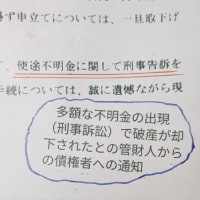 ず申立てについては、一旦取下げ
て、使途不明金に関して刑事告訴を
手続については、誠に遺憾ながら現
多額な不明金の出現
（刑事訴訟）で破産が却
下されたとの管財人から
の債権者への通知